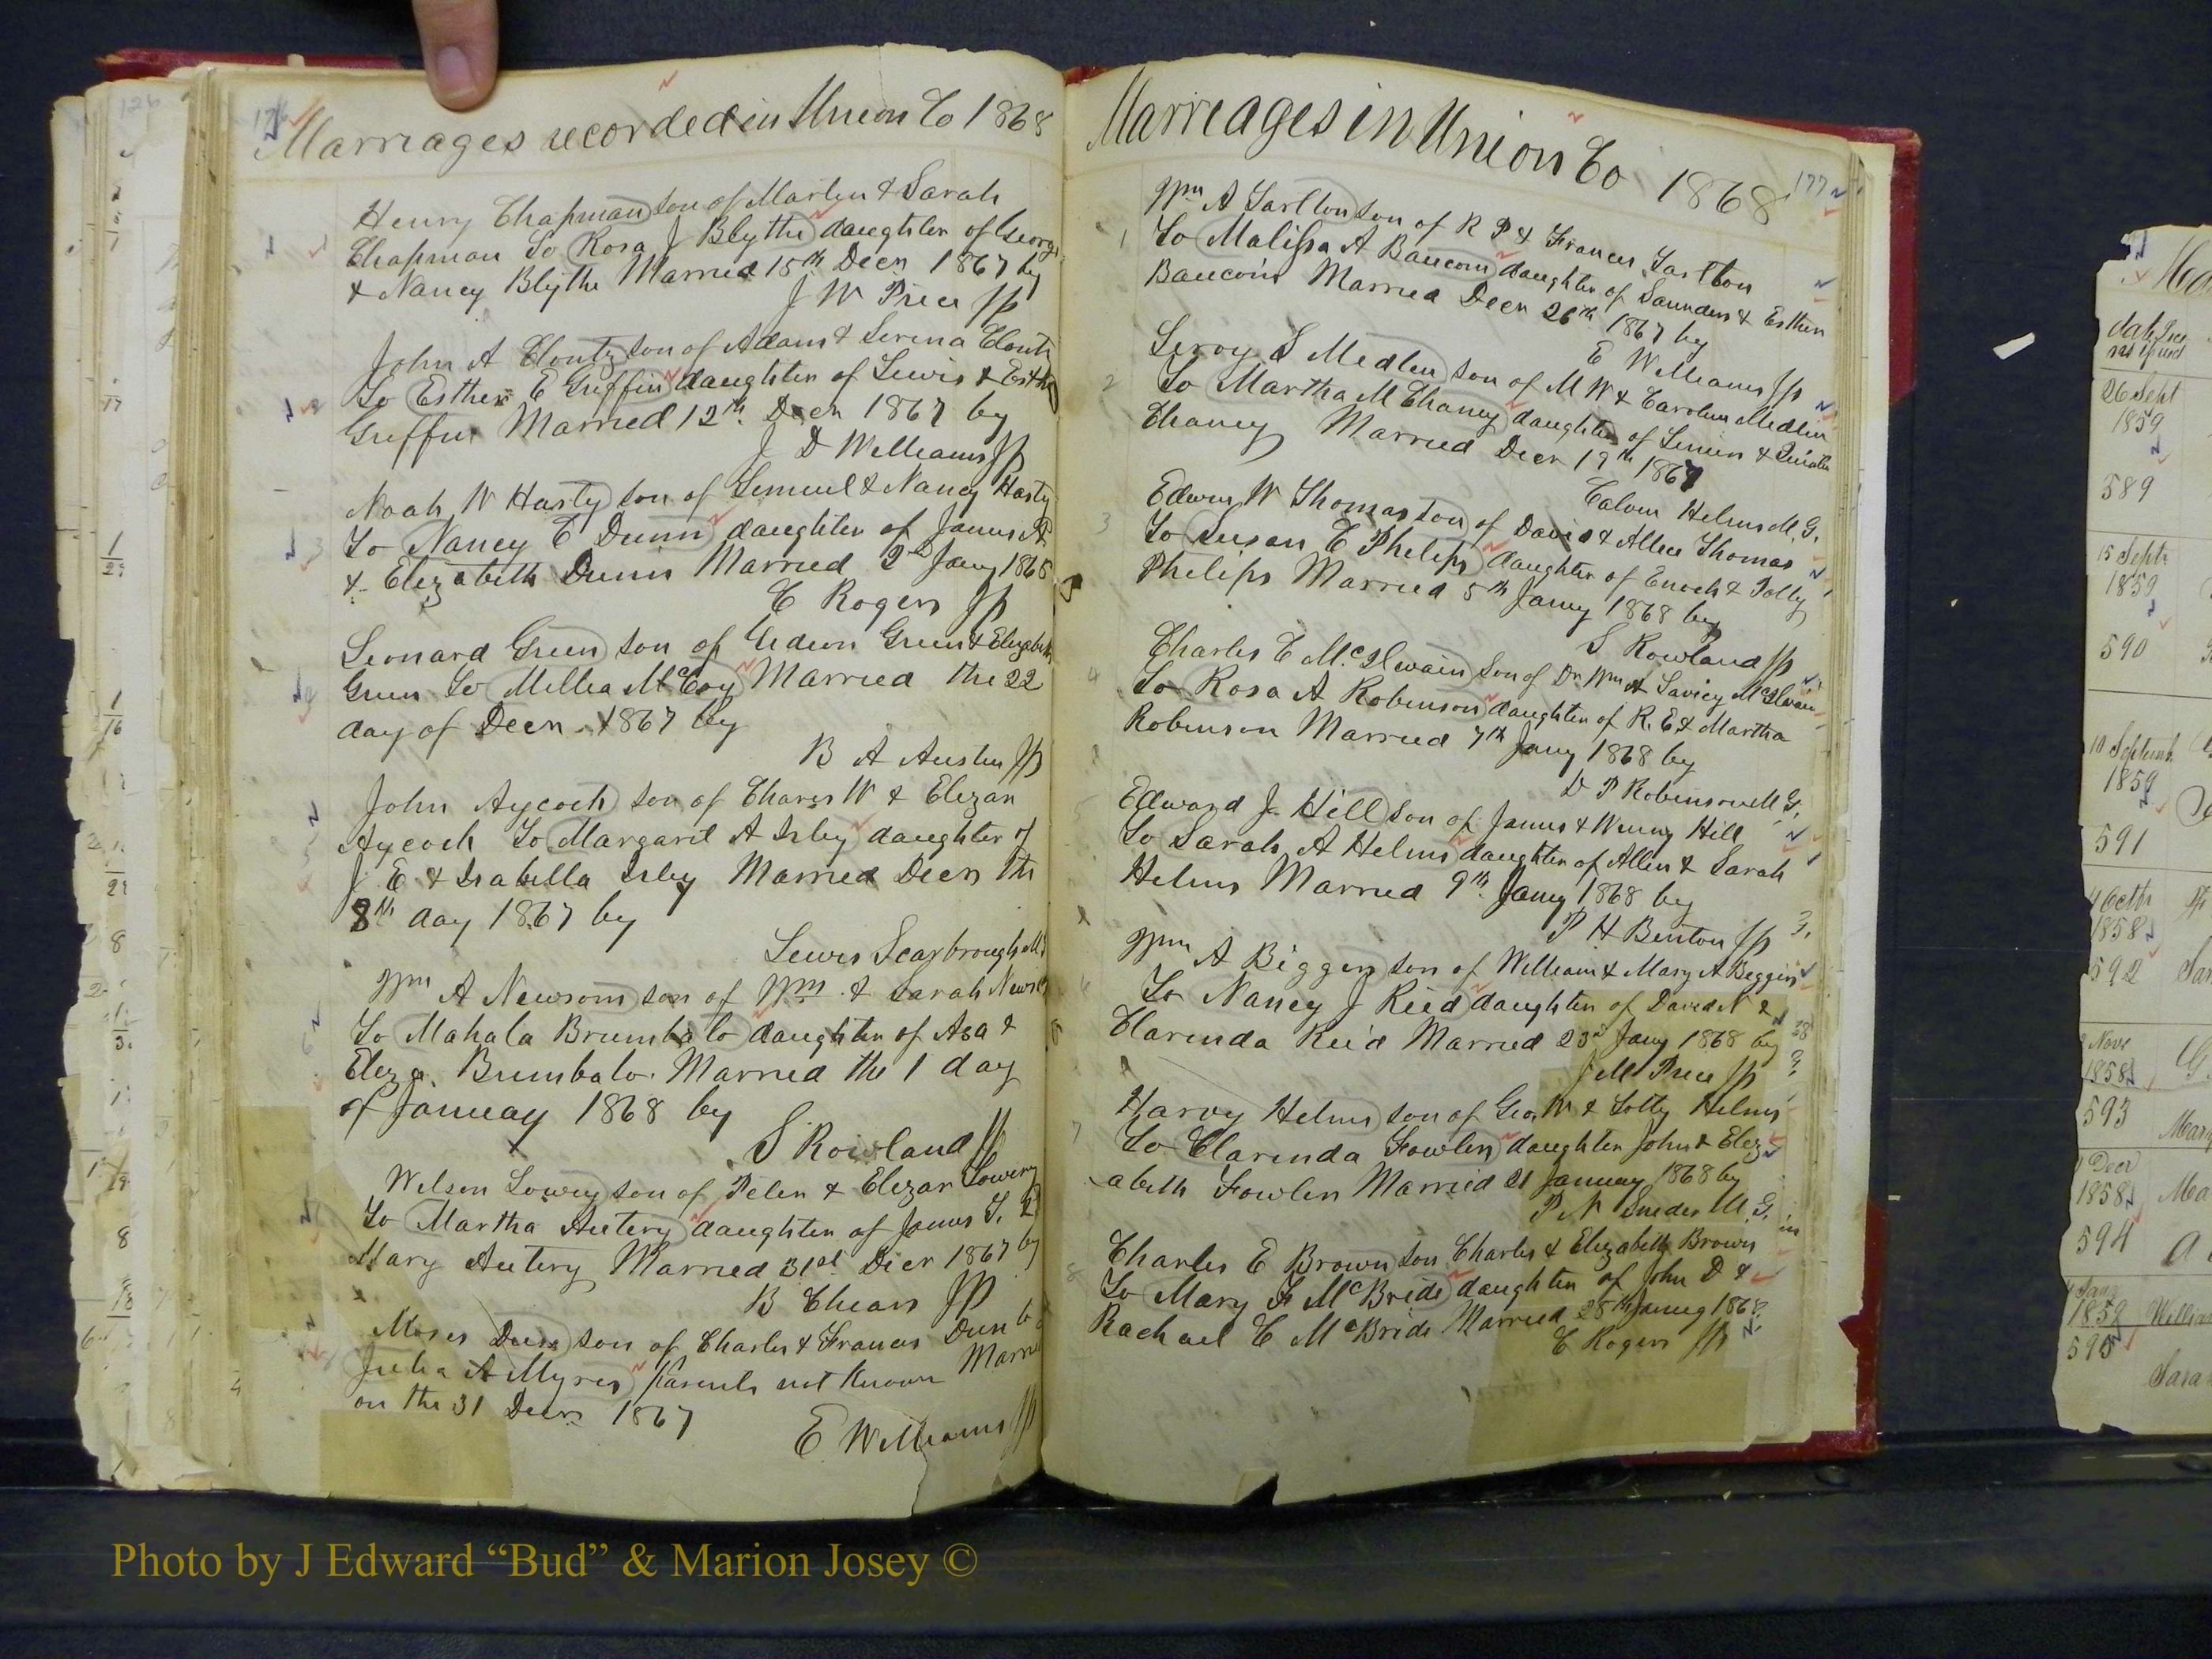 176
Marriages recorded in Union Co 1868
Henry Chapman son of Marlin & Sarah
Chapman To Rosa J Blythe daughter of George
& Nancy Blythe Married 15th Decr 1867 by
J W Price JP
John A Clontz son of Adam & Serena Clontz
To Esther E Griffin daughter of Lewis & Esther
Griffin Married 12th Decr 1867 by
J D Williams JP
Noah W Hasty son of Lemuel & Nancy Hasty
To Nancy E Dunn daughter of James A
& Elizabeth Dunn Married 2d Jany 1868
C Rogers JP
Leonard Green son of Gideon Green & Elizabeth
Green To Millia McCoy Married the 22
day of Decr 1867 by
B A Austin JP
John Aycoch son of Charis W & Elizar
Aycoch To Margaret A Irby daughter of
J E & Isabella Irby Married Decr the
8th day 1867 by
Lewis Scarbrough
Wm A Newsom son of Wm & Sarah
To Mahala Brumbalo daughter of Asa &
Eliza Brumbalo Married the 1 day
of Januay 1868 by
S Rowland JP
Wilson Lowery son of Peter & Elizar Lowery
To Martha Autery daughter of James T. &
Mary Autery Married 31st Decr 1867 by
B Chears JP
Moses Dunn son of Charles & Frances Dunn to
Julia A Myres parents not known Married
on the 31 Decr 1867
E Williams JP
Marriages in Union Co 1868
177
Wm A Tarlton son of R P & Frances Tarlton
1 To Malissa A Baucom daughter of Saunders & Esther
Baucom Married Decr 26th 1867 by
E Williams JP
Leroy S Medlen son of M W & Caroline Medlin
2 To Martha M Chaney daughter of
Chaney Married Decr 19th 1867
Calvin Helms M.G.
Edwin W Thomas son of David & Allen Thomas
3 To Susan E Phelips daughter of Enoch & Polly
Phelips Married 5th Jany 1868 by
S Rowland JP
Charles E McIlwain Son of Dr Wm & Savicy McIlwain
4 To Rosa A Robinson daughter of R. E & Martha
Robinson Married 7th Jany 1868 by
D P Robinson M G.
Edward J. Hill son of James & Winny Hill
5 To Sarah A Helms daughter of Allen & Sarah
Helms Married 9th Jany 1868 by
P H Benton JP
Wm A Biggers son of William & Mary A Biggers
6 To Nancy J Reed daughter of David N &
Clarinda Reid Married 23d Jany 1868 by
J M Price JP
Harvy Helms son of Geo. W & Lotty Helms
7 To Clarinda Fowler daughter John & Eliz
abeth Fowler Married 21 January 1868 by
P N Snider M. G.
Charles E Brown son Charles & Elizabeth Brown
8 To Mary F McBride daughter of John D &
Rachael C McBride Married 28th Januy 1868
C Rogers JP
26 Sept
1859
589
15 Septr
1859
590
10 Septemb
1859
591
4 Octr
1858
592
Nove
1858
593
Decr
1858
594
1859
595
Photo by J Edward “Bud” & Marion Josey ©